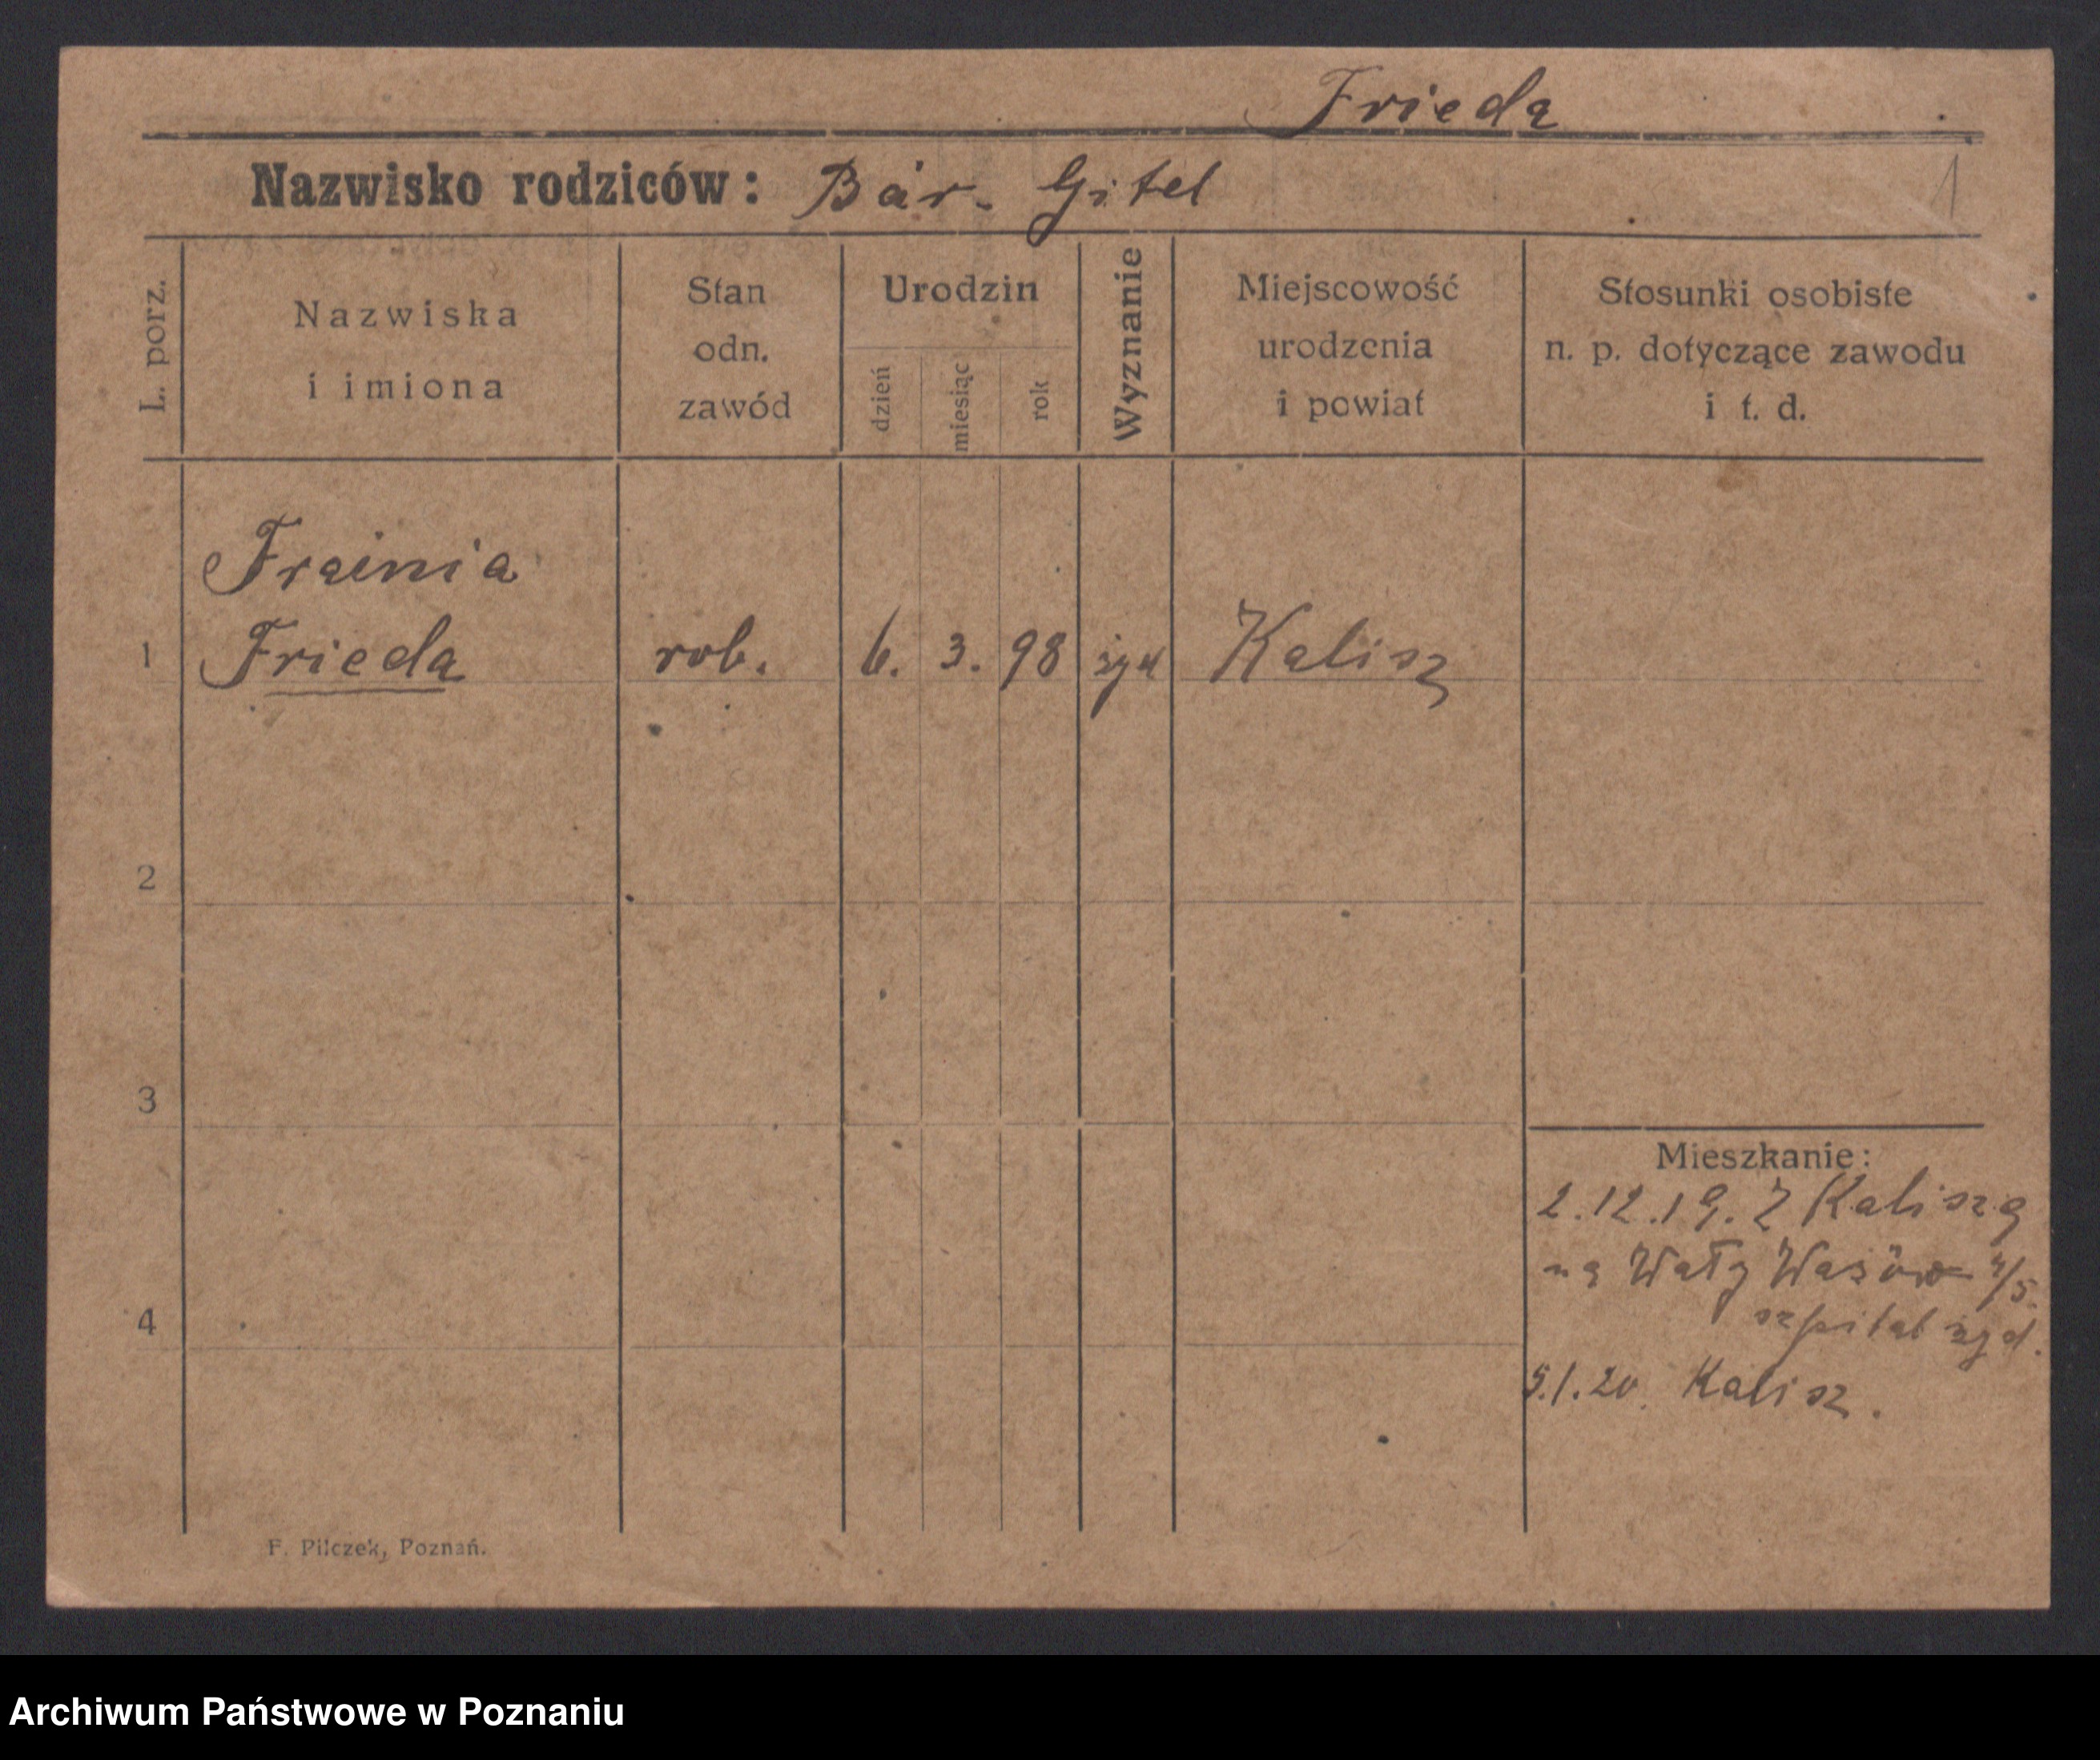 Frieda
Nazwisko rodziców: Bär. Gitel
1
L. porz.
Nazwiska
i imiona
Stan
odn.
zawód
Urodzin
dzień
miesiąc
rok
Wyznanie
Miejscowość
urodzenia
i powiat
Stosunki osobiste
n. p. dotyczące zawodu
i t. d.
Frainia
1 Frieda rob. 6. 3. 98 żyd Kalisz
2
3
Mieszkanie:
2.12.19. Z Kalisza
na Wały Wazów 4/5.
4
szpital żyd.
5.1.20. Kalisz.
F. Pilczek, Poznań.
Archiwum Państwowe w Poznaniu